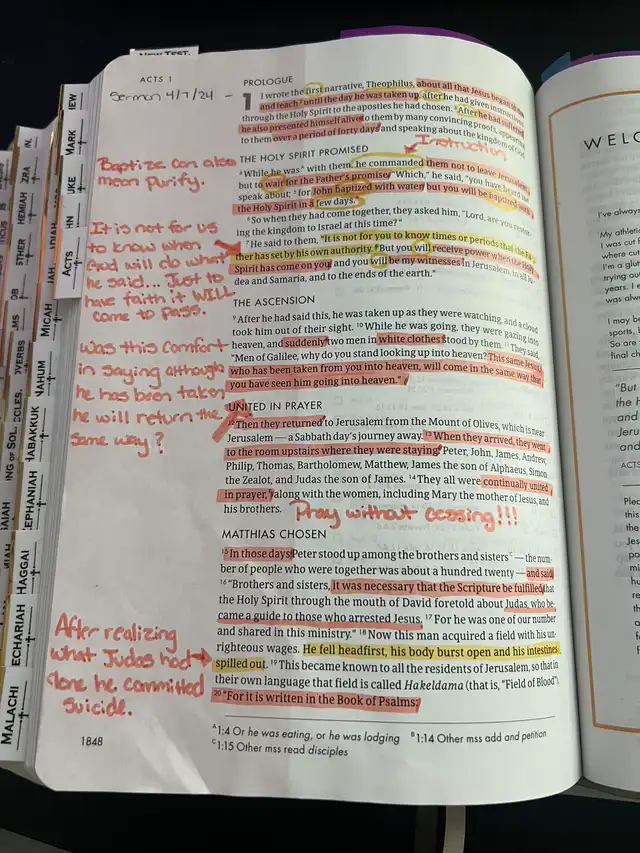 NEW TEST.
ACTS 1
Sermon 4/7/24 —
PROLOGUE
1 I wrote the first narrative, Theophilus, about all that Jesus began to do
and teach until the day he was taken up, after he had given instructions
through the Holy Spirit to the apostles he had chosen. 3 After he had suffered,
he also presented himself alive to them by many convincing proofs, appearing
to them over a period of forty days and speaking about the kingdom of God.
Instruction
THE HOLY SPIRIT PROMISED
4 While he was^ with them, he commanded them not to leave Jerusalem,
but to wait for the Father's promise. "Which," he said, "you have heard me
speak about; 5 for John baptized with water, but you will be baptized with
the Holy Spirit in a few days."
6 So when they had come together, they asked him, "Lord, are you restoring
the kingdom to Israel at this time?"
7 He said to them, "It is not for you to know times or periods that the Fa-
ther has set by his own authority. 8 But you will receive power when the Holy
Spirit has come on you, and you will be my witnesses in Jerusalem, in all Ju-
dea and Samaria, and to the ends of the earth."
Baptize can also
mean Purify.
It is not for us
to know when
God will do what
he said... Just to
have faith it WILL
come to pass.
THE ASCENSION
9 After he had said this, he was taken up as they were watching, and a cloud
took him out of their sight. 10 While he was going, they were gazing into
heaven, and suddenly two men in white clothes stood by them. 11 They said,
"Men of Galilee, why do you stand looking up into heaven? This same Jesus,
who has been taken from you into heaven, will come in the same way that
you have seen him going into heaven."
Was this comfort
in saying although
he has been taken
he will return the
same way?
UNITED IN PRAYER
12 Then they returned to Jerusalem from the Mount of Olives, which is near
Jerusalem — a Sabbath day's journey away. 13 When they arrived, they went
to the room upstairs where they were staying: Peter, John, James, Andrew,
Philip, Thomas, Bartholomew, Matthew, James the son of Alphaeus, Simon
the Zealot, and Judas the son of James. 14 They all were continually united
in prayer, along with the women, including Mary the mother of Jesus, and
his brothers.
Pray without ceasing!!!
MATTHIAS CHOSEN
15 In those days Peter stood up among the brothers and sisters C — the num-
ber of people who were together was about a hundred twenty — and said,
16 "Brothers and sisters, it was necessary that the Scripture be fulfilled that
the Holy Spirit through the mouth of David foretold about Judas, who be-
came a guide to those who arrested Jesus. 17 For he was one of our number
and shared in this ministry." 18 Now this man acquired a field with his un-
righteous wages. He fell headfirst, his body burst open and his intestines
spilled out. 19 This became known to all the residents of Jerusalem, so that in
their own language that field is called Hakeldama (that is, "Field of Blood").
20 "For it is written in the Book of Psalms:
After realizing
what Judas had
done he committed
Suicide.
A 1:4 Or he was eating, or he was lodging B 1:14 Other mss add and petition
C 1:15 Other mss read disciples
1848
MARK
ACTS
MICAH
NAHUM
HABAKKUK
ZEPHANIAH
HAGGAI
ZECHARIAH
MALACHI
WELC
I've always
My athleti
I was cut f
where cut
I'm a glut
trying out
years. I e
was alwa
I may be
sports.
So are
final
"But
the H
and
Jeru
and
ACTS
Plea
this
the